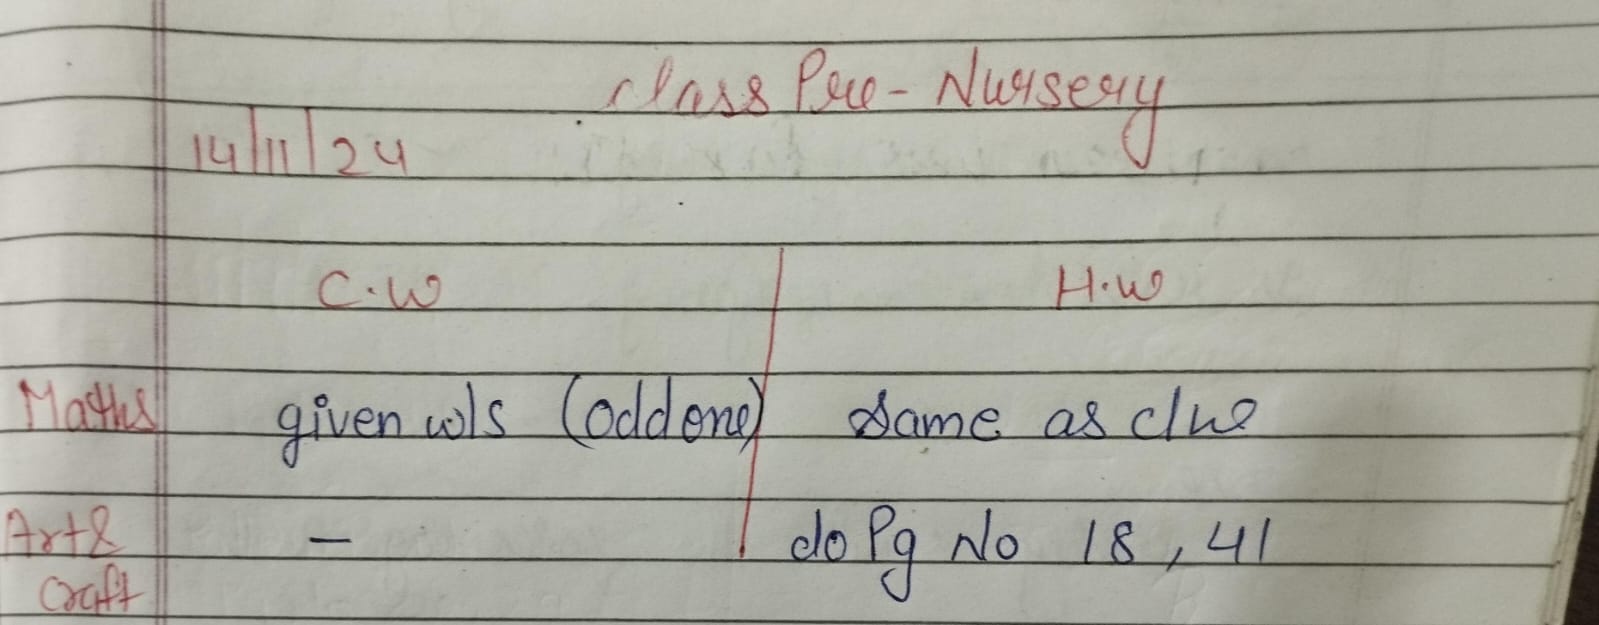 class Pre-Nursery
14/11/24
C.W H.W
Maths given w/s (odd one) Same as c/w
Art & - do Pg No 18, 41
Craft